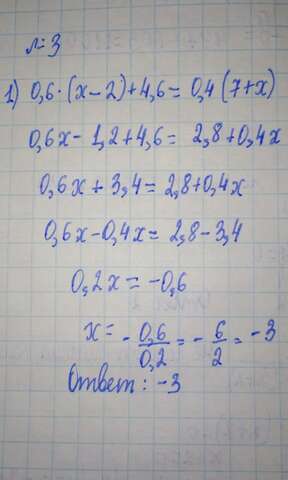 №3
1) 0,6·(x−2)+4,6=0,4(7+x)
0,6x−1,2+4,6=2,8+0,4x
0,6x+3,4=2,8+0,4x
0,6x−0,4x=2,8−3,4
0,2x=−0,6
x=−0,6/0,2=−6/2=−3
Ответ: −3